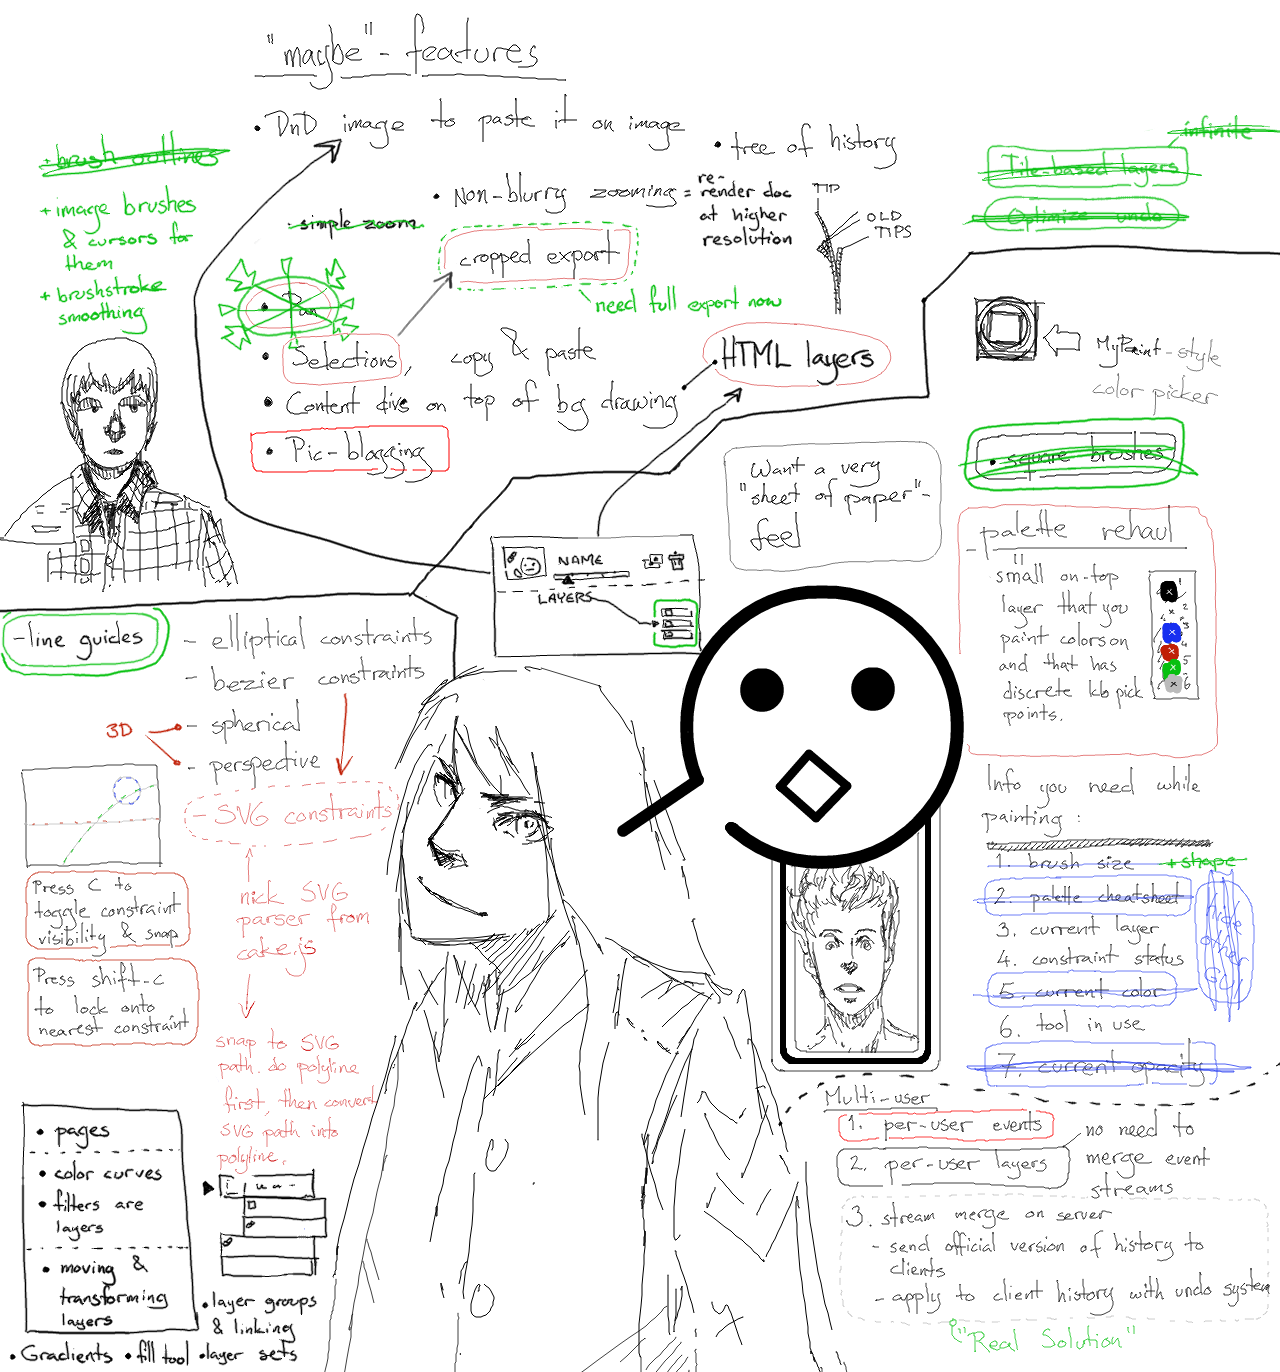 "maybe"-features
• DnD image to paste it on image
+ brush outlines
+ image brushes
& cursors for
them
+ brushstroke
smoothing
• tree of history
TIP
OLD
TIPS
• Non-blurry zooming = re-render doc
at higher
resolution
• simple zoom
cropped export
need full export now
• Pan
• Selections, copy & paste
• HTML layers
• Content divs on top of bg drawing
• Pic-blogging
infinite
Tile-based layers
Optimize undo
MyPaint-style
color picker
• square brushes
Want a very
"sheet of paper"-
feel
NAME
LAYERS
- palette rehaul
small on-top
layer that you
paint colors on
and that has
discrete kb pick
points.
1
2
3
4
5
6
-line guides
- elliptical constraints
- bezier constraints
- spherical
- perspective
3D
- SVG constraints
nick SVG
parser from
cake.js
snap to SVG
path. do polyline
first, then convert
SVG path into
polyline.
Press C to
toggle constraint
visibility & snap
Press shift-C
to lock onto
nearest constraint
Info you need while
painting:
1. brush size + shape
2. palette cheatsheet
3. current layer
4. constraint status
5. current color
6. tool in use
7. current opacity
hide
other
GUI
Multi-user
1. per-user events
2. per-user layers
no need to
merge event
streams
3. stream merge on server
- send official version of history to
clients
- apply to client history with undo system
"Real Solution"
• pages
• color curves
• filters are
layers
• moving &
transforming
layers
• layer groups
& linking
• Gradients • fill tool • layer sets